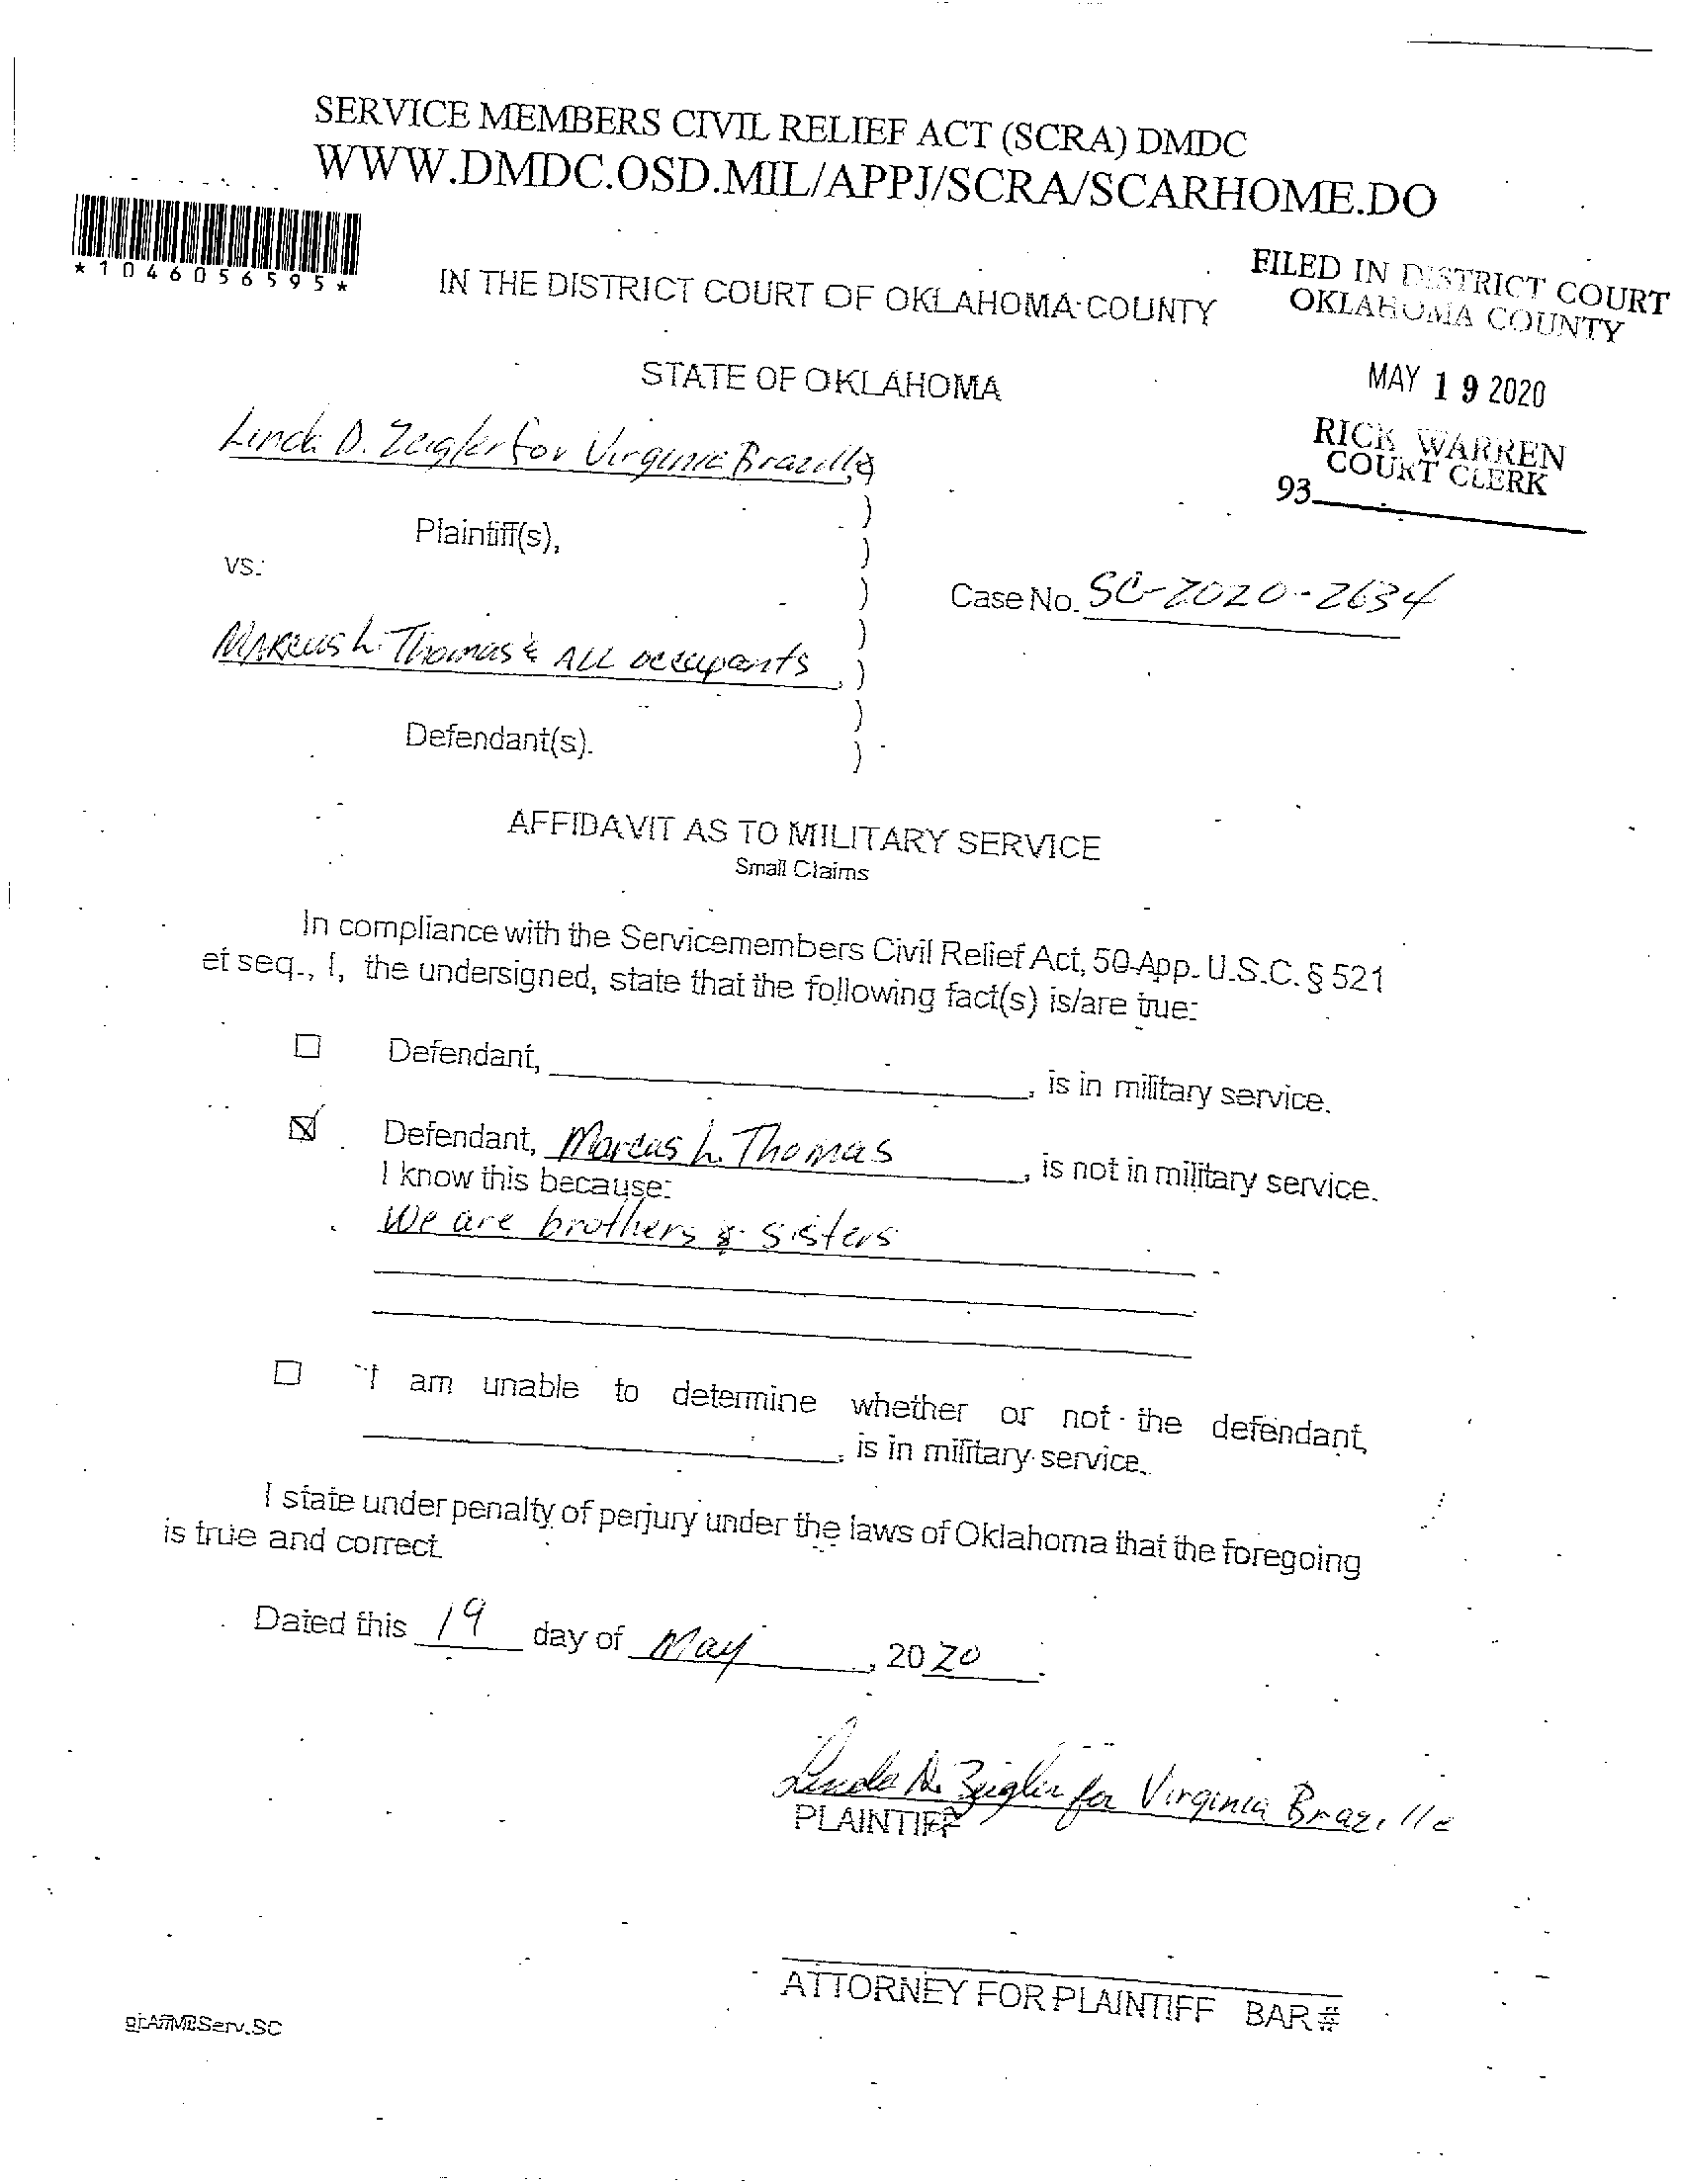 SERVICE MEMBERS CIVIL RELIEF ACT (SCRA) DMDC
WWW.DMDC.OSD.MIL/APPJ/SCRA/SCARHOME.DO
*1046056595*
IN THE DISTRICT COURT OF OKLAHOMA COUNTY
FILED IN DISTRICT COURT
OKLAHOMA COUNTY
STATE OF OKLAHOMA
MAY 19 2020
RICK WARREN
COURT CLERK
93
Linda D. Zeigler for Virginia Brazille
)
)
Plaintiff(s),
)
vs.
)
Case No. SC-2020-2634
)
Marcus L. Thomas & ALL occupants, )
)
Defendant(s).
)
AFFIDAVIT AS TO MILITARY SERVICE
Small Claims
In compliance with the Servicemembers Civil Relief Act, 50 App. U.S.C. § 521
et seq., I, the undersigned, state that the following fact(s) is/are true:
☐ Defendant, , is in military service.
☒ Defendant, Marcus L. Thomas, is not in military service.
I know this because:
We are brothers & sisters
☐ I am unable to determine whether or not the defendant,
, is in military service.
I state under penalty of perjury under the laws of Oklahoma that the foregoing
is true and correct.
Dated this 19 day of May, 2020.
Linda D. Zeigler for Virginia Brazille
PLAINTIFF
ATTORNEY FOR PLAINTIFF BAR #